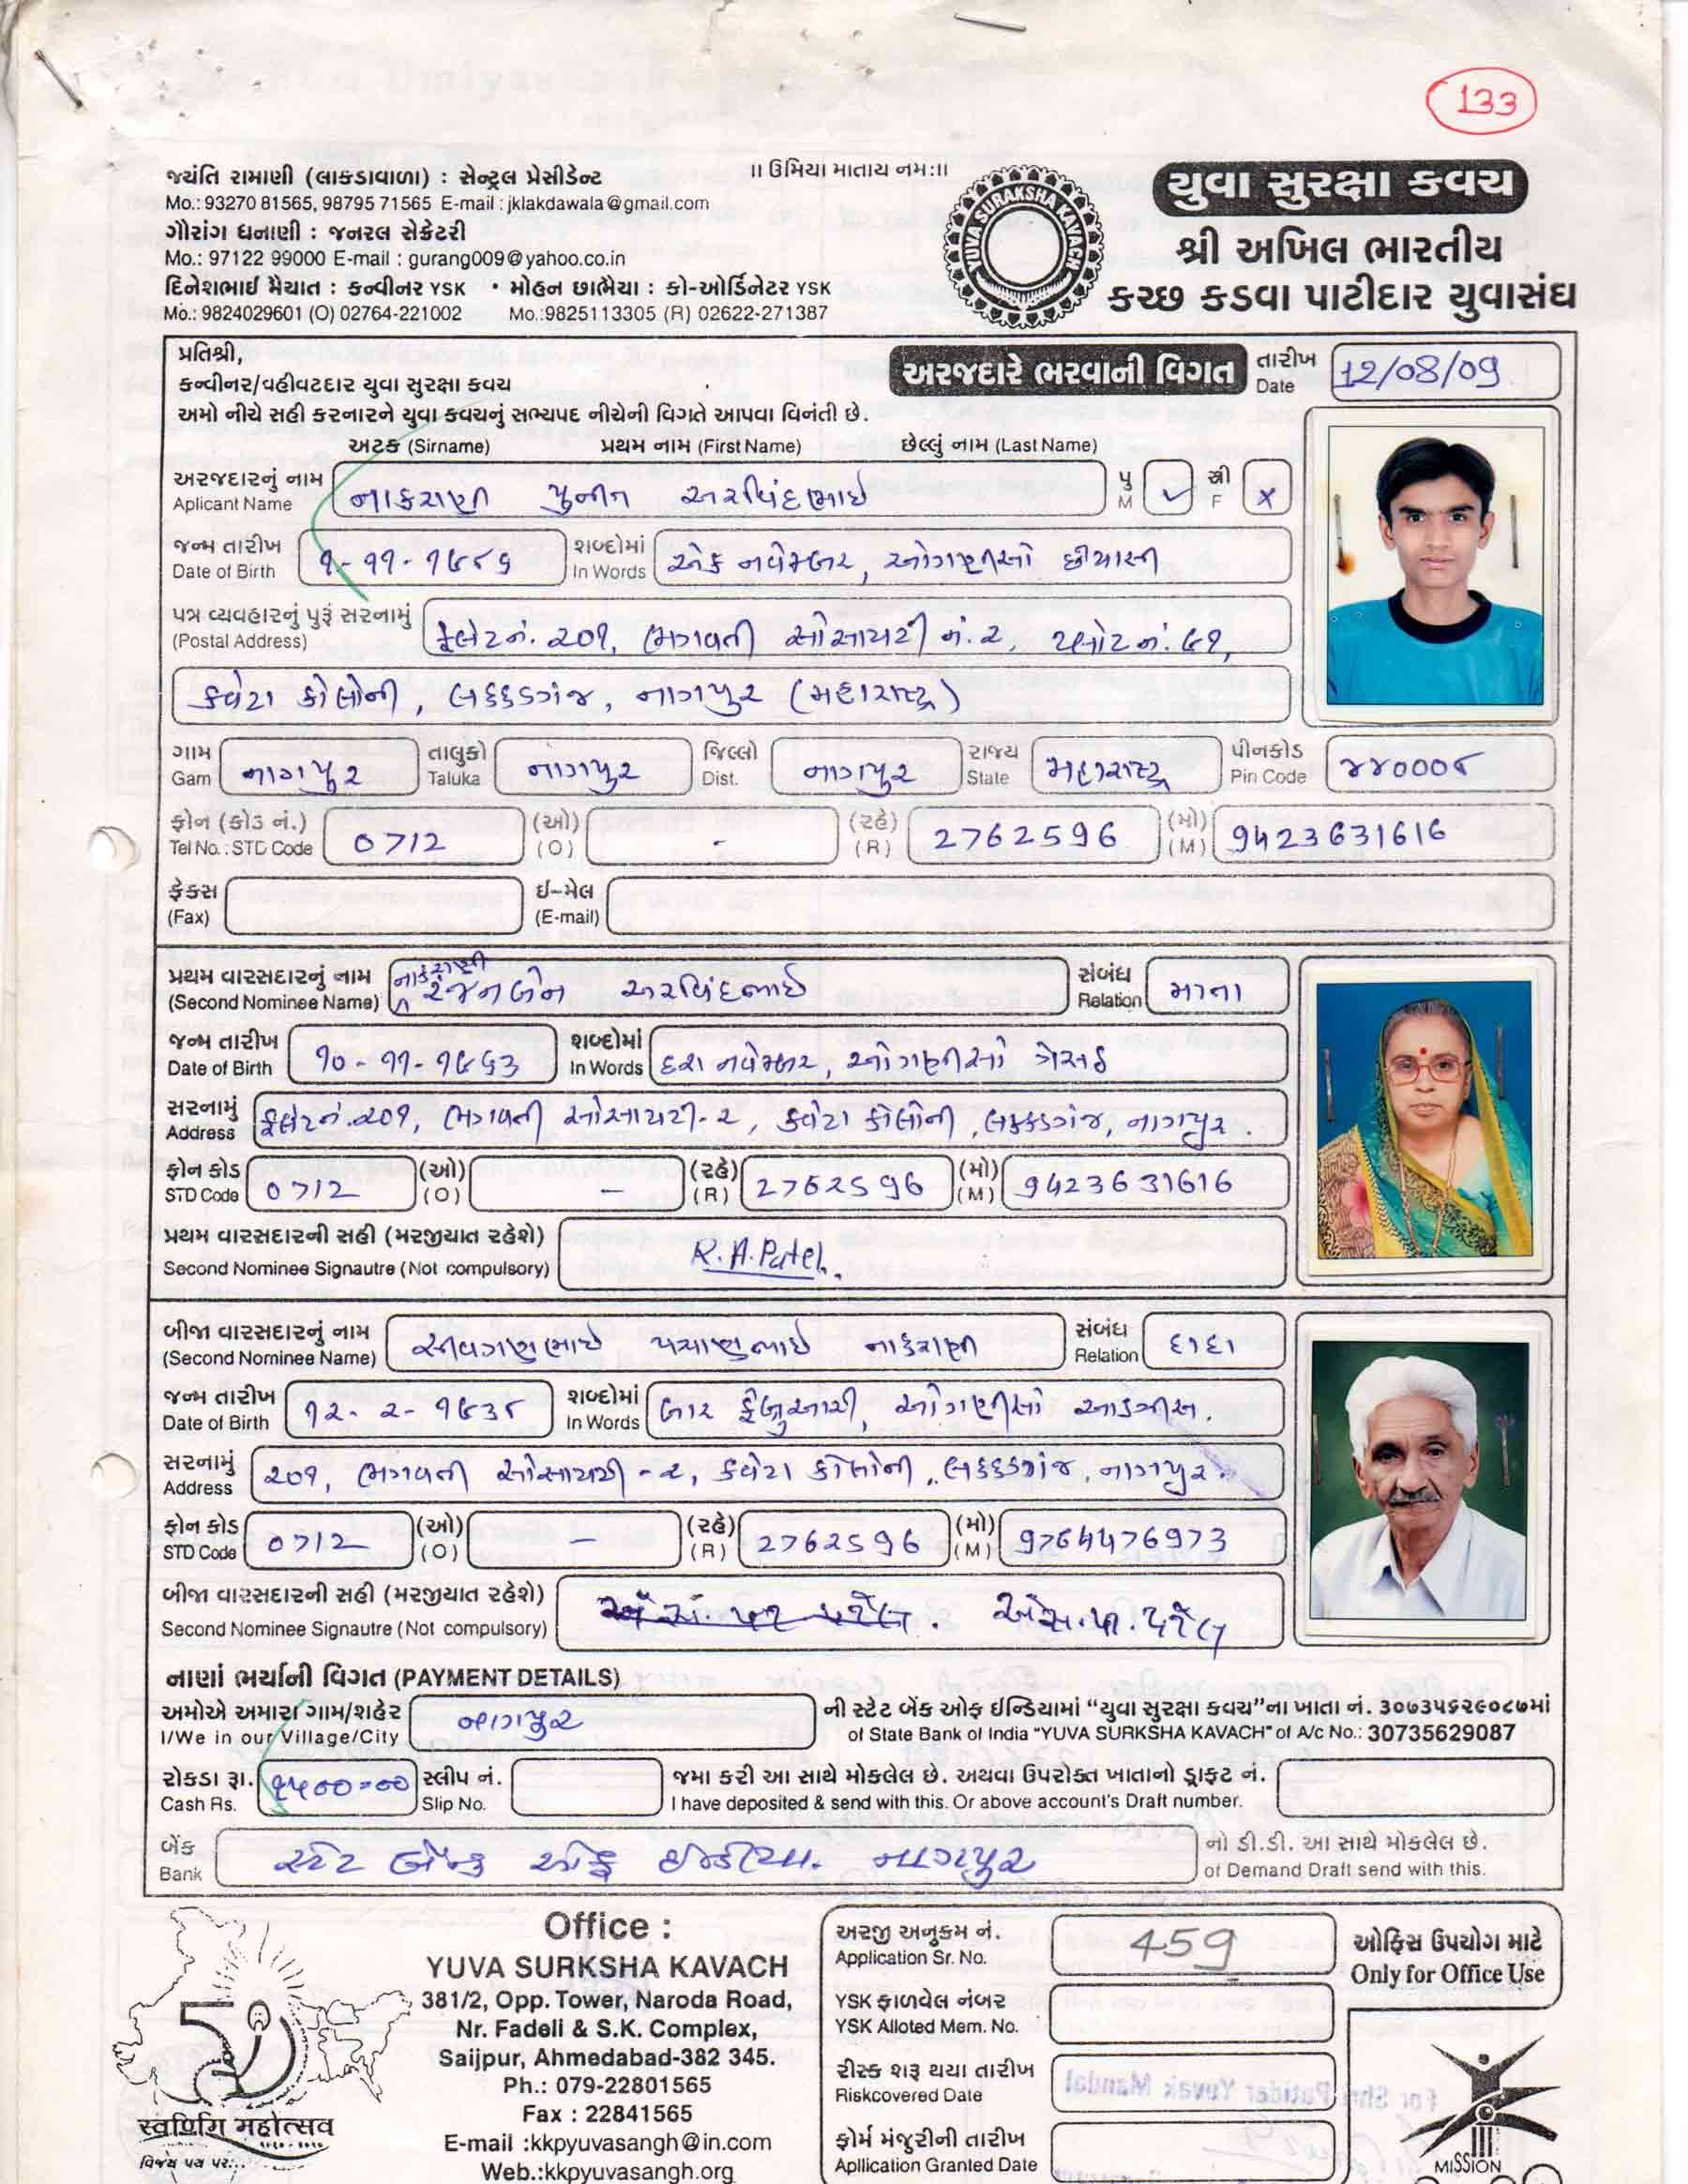 133
જયંતિ રામાણી (લાકડાવાળા) : સેન્ટ્રલ પ્રેસીડેન્ટ
Mo.: 93270 81565, 98795 71565 E-mail : jklakdawala@gmail.com
ગૌરાંગ ધનાણી : જનરલ સેક્રેટરી
Mo.: 97122 99000 E-mail : gurang009@yahoo.co.in
દિનેશભાઈ મૈયાત : કન્વીનર YSK • મોહન છાભૈયા : કો-ઓર્ડિનેટર YSK
Mo.: 9824029601 (O) 02764-221002 Mo.:9825113305 (R) 02622-271387
॥ ઉમિયા માતાય નમઃ॥
YUVA SURAKSHA KAVACH
યુવા સુરક્ષા કવચ
શ્રી અખિલ ભારતીય
કચ્છ કડવા પાટીદાર યુવાસંઘ
પ્રતિશ્રી,
કન્વીનર/વહીવટદાર યુવા સુરક્ષા કવચ
અરજદારે ભરવાની વિગત તારીખ Date 12/08/09
અમો નીચે સહી કરનારને યુવા કવચનું સભ્યપદ નીચેની વિગતે આપવા વિનંતી છે.
અટક (Sirname) પ્રથમ નામ (First Name) છેલ્લું નામ (Last Name)
અરજદારનું નામ Aplicant Name નાકરાણી પુનીત અરવિંદભાઈ પુ M ✓ સ્ત્રી F x
જન્મ તારીખ Date of Birth ૧-૧૧-૧૯૮૬ શબ્દોમાં In Words એક નવેમ્બર, ઓગણીસો છીયાસી
પત્ર વ્યવહારનું પુરૂં સરનામું (Postal Address) ફ્લેટ નં. ૨૦૧, ભગવતી સોસાયટી નં. ૨, પ્લોટ નં. ૬૧,
ક્વેટા કોલોની, લકકડગંજ, નાગપુર (મહારાષ્ટ્ર)
ગામ Gam નાગપુર તાલુકો Taluka નાગપુર જિલ્લો Dist. નાગપુર રાજ્ય State મહારાષ્ટ્ર પીનકોડ Pin Code ૪૪૦૦૦૮
ફોન (કોડ નં.) Tel No. : STD Code 0712 (ઓ) (O) - (રહે) (R) 2762596 (મો) (M) 9423631616
ફેકસ (Fax) ઈ-મેલ (E-mail)
પ્રથમ વારસદારનું નામ (Second Nominee Name) નાકરાણી રંજનબેન અરવિંદભાઈ સંબંધ Relation માતા
જન્મ તારીખ Date of Birth ૧૦-૧૧-૧૯૬૩ શબ્દોમાં In Words દશ નવેમ્બર, ઓગણીસો ત્રેસઠ
સરનામું Address ફ્લેટ નં. ૨૦૧, ભગવતી સોસાયટી-૨, ક્વેટા કોલોની, લકકડગંજ, નાગપુર.
ફોન કોડ STD Code 0712 (ઓ) (O) - (રહે) (R) 2762596 (મો) (M) 9423631616
પ્રથમ વારસદારની સહી (મરજીયાત રહેશે)
Second Nominee Signautre (Not compulsory) R.A.Patel.
બીજા વારસદારનું નામ (Second Nominee Name) પચાણભાઈ નાકરાણી સંબંધ Relation દાદા
જન્મ તારીખ Date of Birth ૧૨-૨-૧૯૩૮ શબ્દોમાં In Words બાર ફેબ્રુઆરી, ઓગણીસો આડત્રીસ.
સરનામું Address ૨૦૧, ભગવતી સોસાયટી-૨, ક્વેટા કોલોની, લકકડગંજ, નાગપુર.
ફોન કોડ STD Code 0712 (ઓ) (O) - (રહે) (R) 2762596 (મો) (M) 9764476973
બીજા વારસદારની સહી (મરજીયાત રહેશે)
Second Nominee Signautre (Not compulsory) એસ.પી.પટેલ
નાણાં ભર્યાની વિગત (PAYMENT DETAILS)
અમોએ અમારા ગામ/શહેર નાગપુર ની સ્ટેટ બેંક ઓફ ઈન્ડિયામાં “યુવા સુરક્ષા કવચ”ના ખાતા નં. ૩૦૭૩૫૬૨૯૦૮૭માં
I/We in our Village/City of State Bank of India "YUVA SURKSHA KAVACH" of A/c No.: 30735629087
રોકડા રૂા. ૧૫૦૦=૦૦ સ્લીપ નં. જમા કરી આ સાથે મોકલેલ છે. અથવા ઉપરોક્ત ખાતાનો ડ્રાફ્ટ નં.
Cash Rs. Slip No. I have deposited & send with this. Or above account's Draft number.
બેંક Bank સ્ટેટ બેન્ક ઓફ ઈન્ડીયા. નાગપુર નો ડી.ડી. આ સાથે મોકલેલ છે.
of Demand Draft send with this.
50
स्वर्णिम महोत्सव
Office :
YUVA SURKSHA KAVACH
381/2, Opp. Tower, Naroda Road,
Nr. Fadeli & S.K. Complex,
Saijpur, Ahmedabad-382 345.
Ph.: 079-22801565
Fax : 22841565
E-mail :kkpyuvasangh@in.com
Web.:kkpyuvasangh.org
અરજી અનુક્રમ નં. Application Sr. No. 459
ઓફિસ ઉપયોગ માટે
Only for Office Use
YSK ફાળવેલ નંબર
YSK Alloted Mem. No.
રીસ્ક શરૂ થયા તારીખ
Riskcovered Date
ફોર્મ મંજુરીની તારીખ
Apllication Granted Date
MISSION